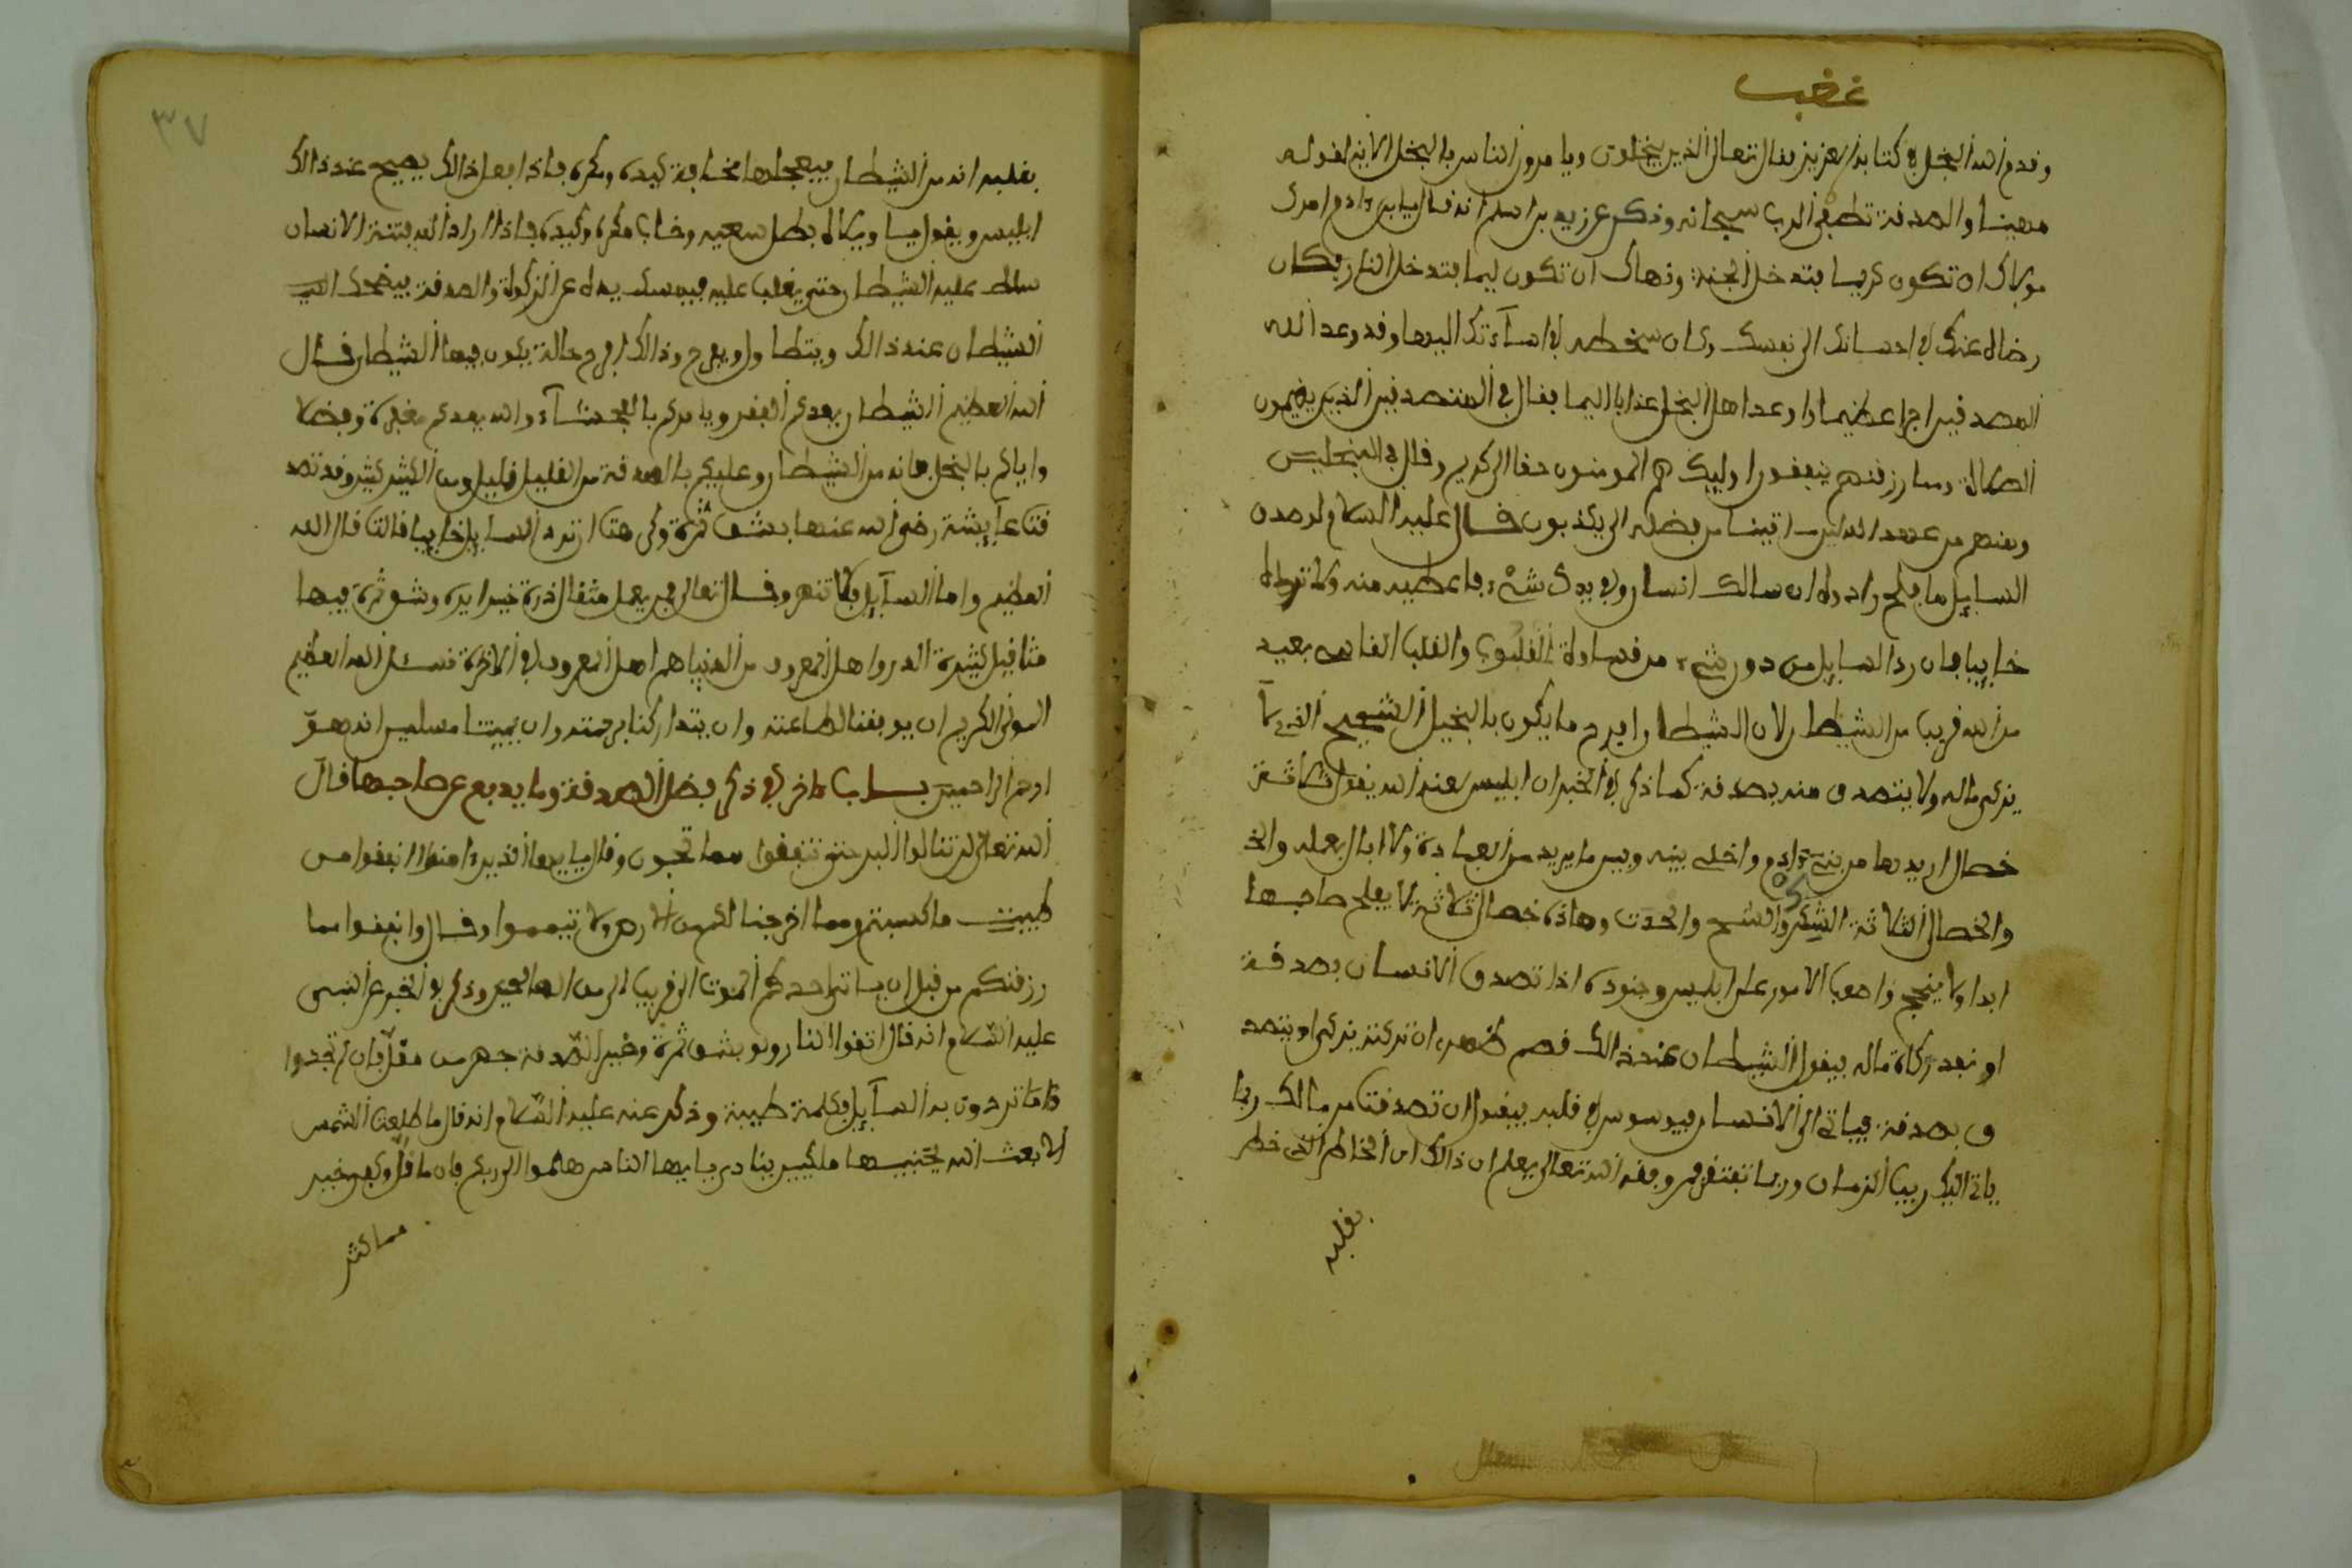 غضب
وقدم الله البخل في كتابه العزيز فقال تعالى الذين يبخلون ويامرون الناس بالبخل الاية لقوله
مهينا والصدقة تطفي الرب سبحانه وذكر عن زيد بن اسلم انه قال يابن ءادم امرك
مولاك ان تكون كريما فتدخل الجنة ونهاك ان تكون ليما فتدخل النار فكان
رضاه عنك في احسانك الى نفسك وكان سخطه في اساءتك اليها وقد وعد الله
المصدقين اجرا عظيما واوعد اهل البخل عذابا اليما فقال في المتصدقين الذين يقيمون
الصلاة ومما رزقنهم ينفقون اوليك هم المومنون حقا الى كريم وقال في البخلين
ومنهم من عهد الله لين اتينا من فضله الى يكذبون قال عليه السلام لو صدق
السايل ما افلح راده وان سالك انسان وفي يدك شيء فاعطيه منه ولا ترده
خايبا فان رد السايل من دون شيء من قساوة القلوب والقلب القاسي بعيد
من الله قريب من الشيطان لان الشيطان افرح ما يكون بالبخيل الشحيح الذي لا
يزكي ماله ولا يتصدق منه بصدقة كما ذكر في الخبر ان ابليس لعنه الله يقول ثلاثة
خصال اريدها من بني ءادم واخلي بينه وبين ما يريد من العبادة ولا ابالي بعمله
والخصال الثلاثة الشكر والشح والحدث وهاذه خصال ثلاثة لا يفلح صاحبها
ابدا ولا ينجح واصعب الامور على ابليس وجنوده اذا تصدق الانسان بصدقة
او بعد زكاة ماله فيقول الشيطان عند ذالك قصم ظهري ان تركته يزكي او يتصد
ق بصدقة فياتي الى الانسان فيوسوس في قلبه فيقول ان تصدقت من مالك ربما
ياتي اليك ريب الزمان وربما تفتقر فمن وفقه الله تعالى يعلم ان ذالك من الخاطر الذي خطر
بقلبه
٣٧
بقلبه انه من الشيطان فيعجلها مخافة كيده ومكره فاذا فعل ذالك يصيح عند ذالك
ابليس ويقول يا ويلاه بطل سعيه وخاب مكره وكيده فاذا اراد الله فتنة الانسان
سلط عليه الشيطان حتى يغلب عليه فيمسك يده عن الزكواة والصدقة فيضحك اليه
الشيطان عند ذالك ويتطاول ويفرح وذالك افرح حالة يكون فيها الشيطان قال
الله العظيم الشيطان يعدكم الفقر ويامركم بالفحشاء والله يعدكم مغفرة وفضلا
واياكم بالبخل فانه من الشيطان وعليكم بالصدقة من القليل قليل ومن الكثير كثير وقد تصد
قت عايشة رضي الله عنها بشق ثمرة وكرهت ان ترد السايل خايبا قالت قال الله
العظيم واما السايل فلا تنهر وقال تعالى فمن يعمل مثقال ذرة خيرا يره وشق ثمرة فيها
مثاقيل كثيرة الذر واهل المعروف في الدنيا هم اهل المعروف في الاخرة نسئل الله العظيم
المولى الكريم ان يوفقنا لطاعته وان يتداركنا برحمته وان يميتنا مسلمين انه هو
ارحم الراحمين باب ءاخر في ذكر فضل الصدقة وما يدفع عن صاحبها قال
الله تعالى لن تنالوا البر حتى تنفقوا مما تحبون وقال يا ايها الذين ءامنوا انفقوا من
طيبت ما كسبتم ومما اخرجنا لكم من الارض ولا تيمموا وقال وانفقوا مما
رزقنكم من قبل ان ياتي احدكم الموت الى قريب الى من الصالحين وذكر في الخبر عن النبي
عليه السلام انه قال اتقوا النار ولو بشق ثمرة وخير الصدقة جهد من مقل فان لم تجدوا
ما تردون به السايل فكلمة طيبة وذكر عنه عليه السلام انه قال ما طلعت الشمس
الا بعث الله بجنبيها ملكين يناديي يا ايها الناس هلموا الى ربكم فان ما قل وكفى خير
مما كثر